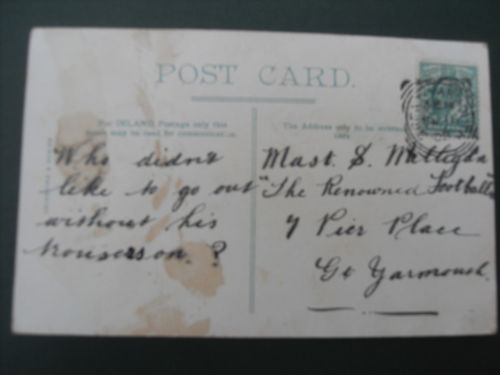 POST CARD.
For INLAND Postage only this
space may be used for communication.
The Address only to be written
here
Who didn't
like to go out
without his
trousers on. ?
Mast. S.
"The Renowned Football"
7 Pier Place
Gt Yarmouth.